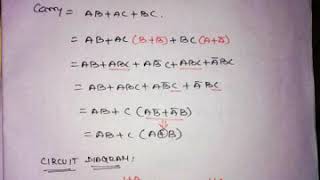 Carry = AB + AC + BC.
= AB + AC (B+B̅) + BC (A+A̅)
= AB + ABC + AB̅C + ABC + A̅BC
= AB + ABC + AB̅C + A̅BC
= AB + C (AB̅ + A̅B)
= AB + C (A⊕B)
CIRCUIT DIAGRAM: